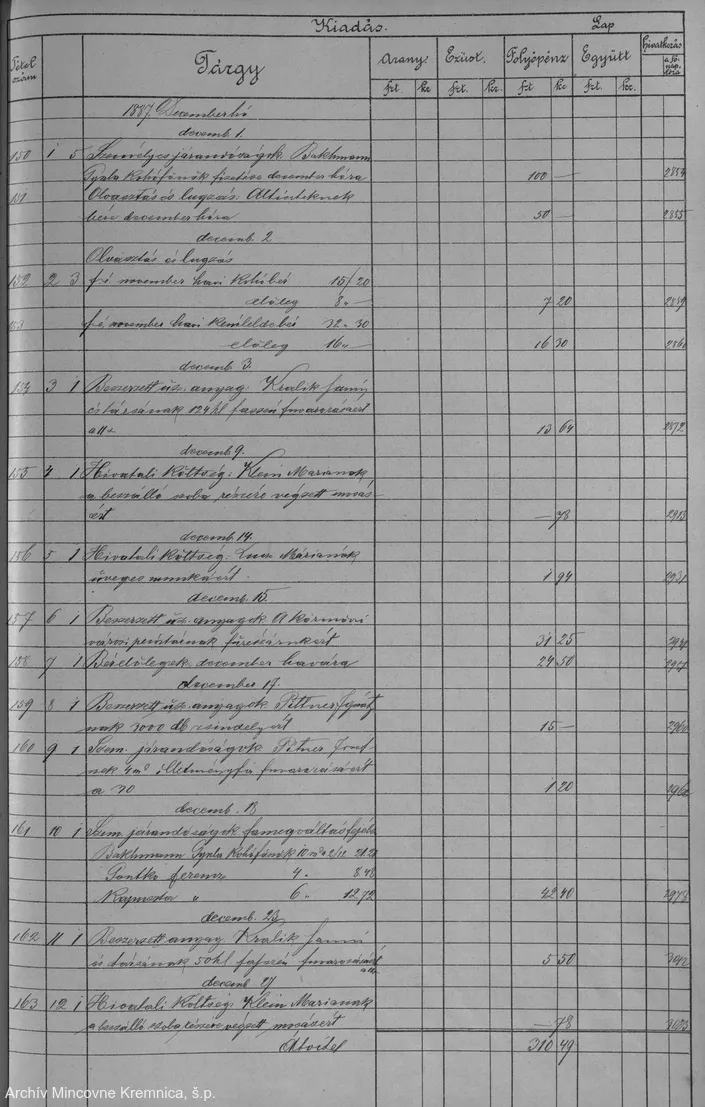 Kiadás. Lap
Tétel szám Tárgy Arany. Ezüst. Folyópénz Együtt hivatkozás a főnaplóra
frt. kr. frt. kr. frt. kr. frt. kr.
1887. Decemberhó
decemb 1.
150 1 5 Személyes járandóságok Bakhmann
Gyula Kohófőnök fizetése december hóra 100 —
151 Olvasztás és lugzás. Altiszteknek
bére december hóra 50 — 2855
decemb. 2
Olvasztás és lugzás
152 2 3 november havi Kohóbér 15 20
előleg 8 — 7 20 2859
153 november havi 32 30
előleg 16 — 16 30
decemb 3.
154 3 1 Beszerzett üz. anyag. Kralik
és társának 124 hl faszén fuvarozásáért
13 64 2872
decemb 9.
155 4 1 Hivatali Költség: Klein Marianak
a beszálló szoba részére végzett mosás-
ért — 78 2913
decemb. 14.
156 5 1 Hivatali Költség: Máriának
üveges munkáért 1 94 2931
decemb. 15.
157 6 1 Beszerzett üz. anyagok A körmöczi
városi pénztárnak fűrészárukért 31 25
158 7 1 Bérelőlegek december havára 24 50
december 17.
159 8 1 Beszerzett üz. anyagok Pittner Ignátz
nak 3000 db zsindelyért 15 — 2960
160 9 1 Szem. járandóságok Pitner
nek 4 m³ illetményfa fuvarozásáért
a 30 1 20 2962
decemb. 18
161 10 1 Szem. járandóságok famegváltás fejébe
Bakhmann Gyula Kohófőnök 10 m³ a 2/12 21.20
Pontko Ferencz 4 " 8.48
" 6 " 12.72 42 40 2978
decemb. 23
162 11 1 Beszerzett anyag Kralik
és társának 50 hl faszén fuvarozásáért
5 50 3042
decemb 27
163 12 1 Hivatali Költség Klein Marianak
a beszálló szoba részére végzett mosásért — 78 3073
Átvitel 310 49
Archív Mincovne Kremnica, š.p.